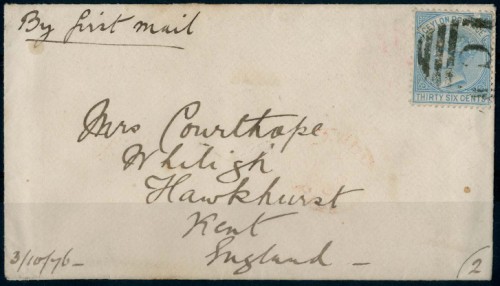 By first mail
CEYLON POSTAGE
THIRTY SIX CENTS
C
Mrs Courthope
Whiligh
Hawkhurst
Kent
England
3/10/76
(2